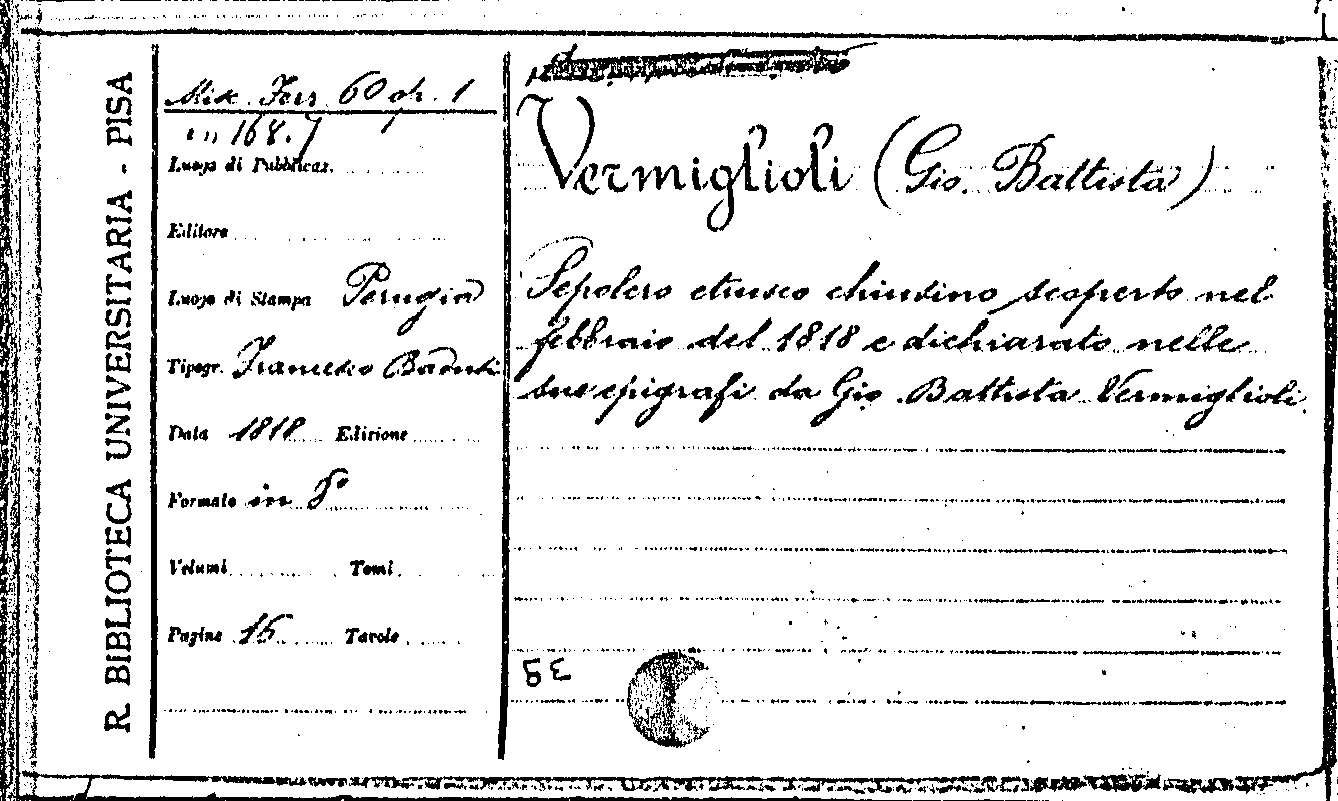 R. BIBLIOTECA UNIVERSITARIA - PISA
Misc. Ferr. 60 op. 1
in 168.7
Luogo di Pubblicaz.
Editore
Luogo di Stampa Perugia
Tipogr. Francesco Baduel
Data 1818 Edizione
Formato in 8°
Volumi Tomi
Pagine 16 Tavole
Vermiglioli (Gio. Battista)
Sepolcro etrusco chiusino scoperto nel
febbraio del 1818 e dichiarato nelle
sue epigrafi da Gio. Battista Vermiglioli.